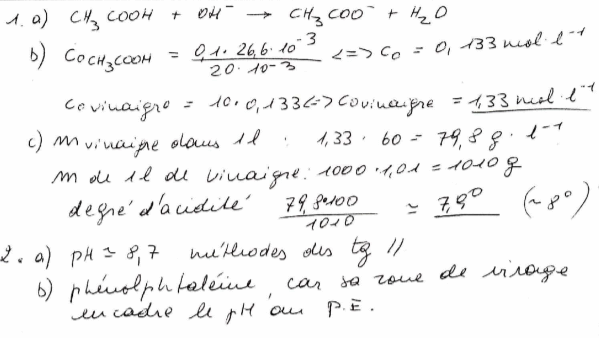 1. a) CH3 COOH + OH⁻ → CH3 COO⁻ + H2O
b) C0 CH3COOH = 0,1 · 26,6 · 10⁻³ / 20 · 10⁻³ <=> C0 = 0,133 mol · l⁻¹
C0 vinaigre = 10 · 0,133 <=> C0 vinaigre = 1,33 mol · l⁻¹
c) m vinaigre dans 1l : 1,33 · 60 = 79,8 g · l⁻¹
m de 1l de vinaigre : 1000 · 1,01 = 1010 g
degré d'acidité 79,8·100 / 1010 ≃ 7,9° (~ 8°)
2. a) pH ≃ 8,7 méthodes des tg //
b) phénolphtaléine, car sa zone de virage
encadre le pH au P.E.